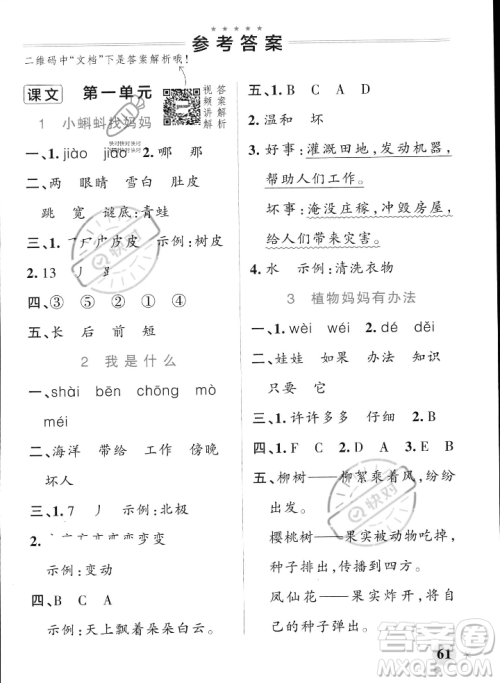 参考答案
二维码中“文档”下是答案解析哦！
课文 第一单元
视频讲解
答案解析
1 小蝌蚪找妈妈
一、1. jiào jiāo 2. 哪 那
二、两 眼睛 雪白 肚皮
跳 宽 谜底：青蛙
三、1. 皮皮 示例：树皮
2. 13 丿
四、③ ⑤ ② ① ④
五、长 后 前 短
2 我是什么
一、shài bēn chōng mò
méi
二、海洋 带给 工作 傍晚
坏人
三、1. 7 丿 示例：北极
2. 变变
示例：变动
四、B C A
示例：天上飘着朵朵白云。
五、1. B CAD
2. 温和 坏
3. 好事：灌溉田地，发动机器，
帮助人们工作。
坏事：淹没庄稼，冲毁房屋，
给人们带来灾害。
4. 水 示例：清洗衣物
3 植物妈妈有办法
一、1. wèi wéi 2. dé děi
二、娃娃 如果 办法 知识
只要 它
三、1. 许许多多 仔细 2. B
四、1. F C A 2. B D E
五、柳树——柳絮乘着风，纷纷
出发。
樱桃树——果实被动物吃掉，
种子排出，传播到四方。
凤仙花——果实炸开，将自
己的种子弹出。
61
答案圈
MXQE.COM